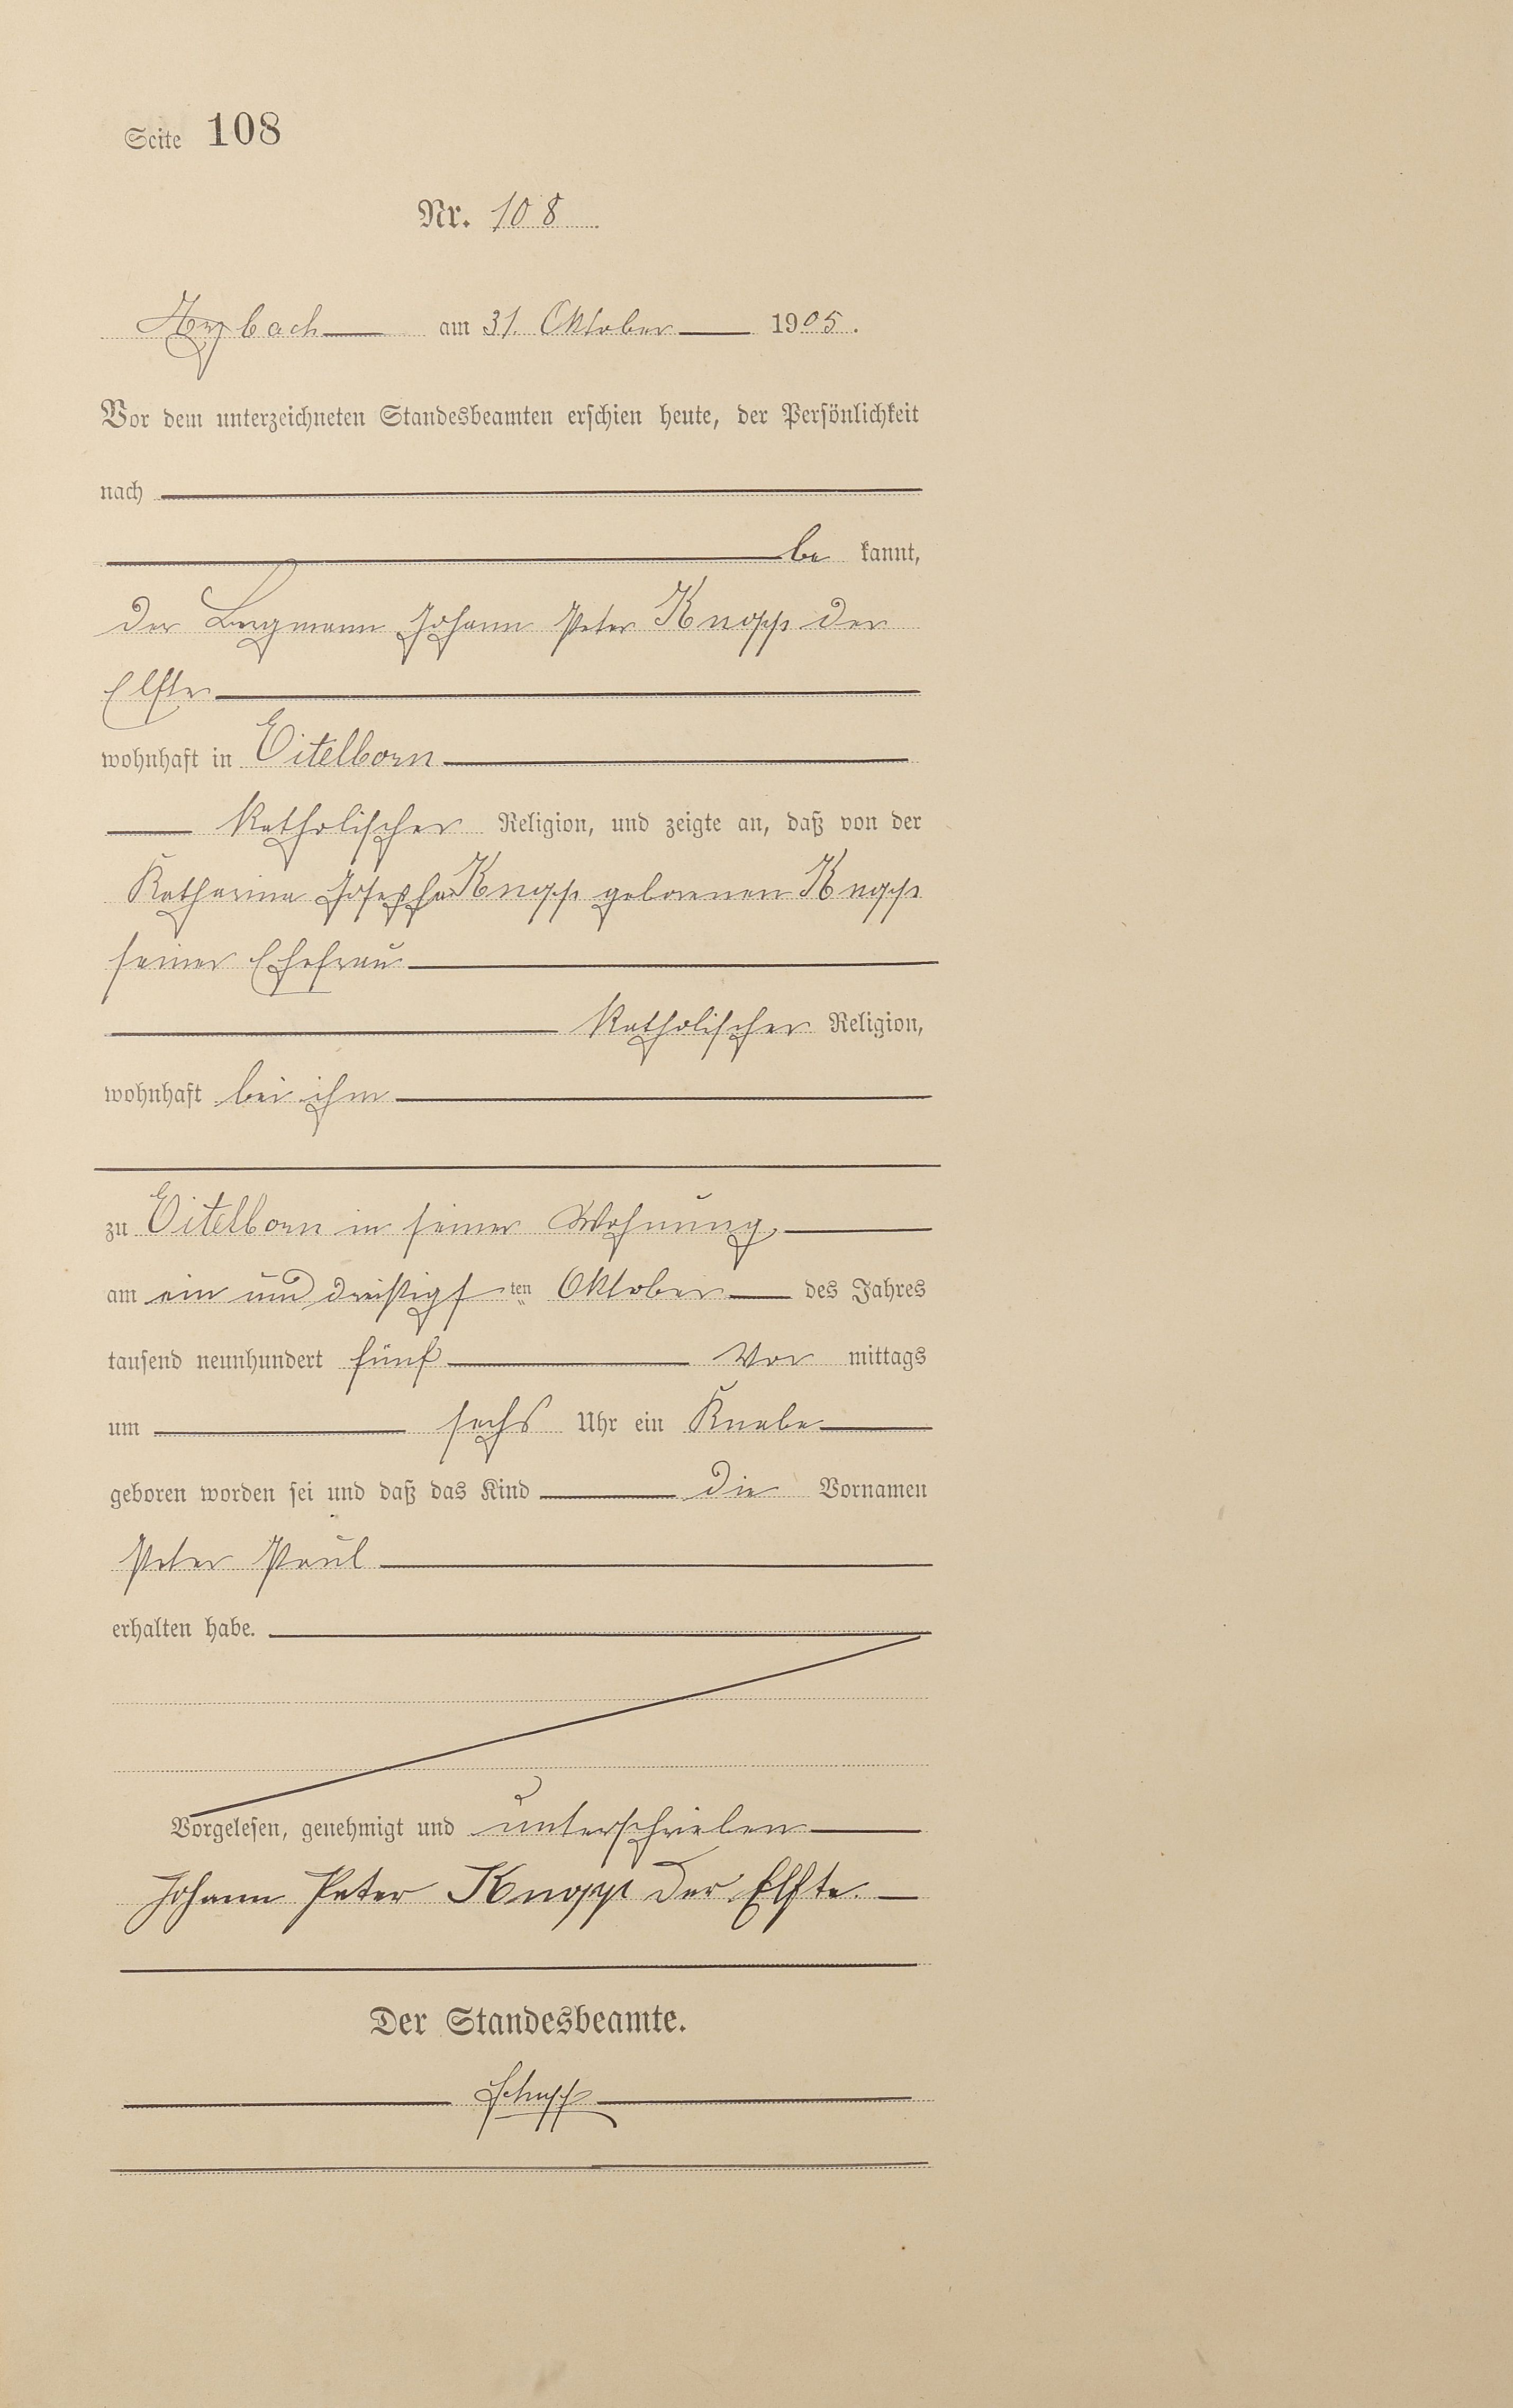 Seite 108
Nr. 108
Arzbach am 31. Oktober 1905.
Vor dem unterzeichneten Standesbeamten erschien heute, der Persönlichkeit
nach
be kannt,
der Bergmann Johann Peter Knopp der
Elfte
wohnhaft in Eitelborn
katholischer Religion, und zeigte an, daß von der
Katharina Josepha Knopp geborenen Knopp
seiner Ehefrau
katholischer Religion,
wohnhaft bei ihm
zu Eitelborn in seiner Wohnung,
am ein und dreißigsten Oktober des Jahres
tausend neunhundert fünf Vor mittags
um sechs Uhr ein Knabe
geboren worden sei und daß das Kind die Vornamen
Peter Paul
erhalten habe.
Vorgelesen, genehmigt und unterschrieben
Johann Peter Knopp der Elfte.
Der Standesbeamte.
Schupp